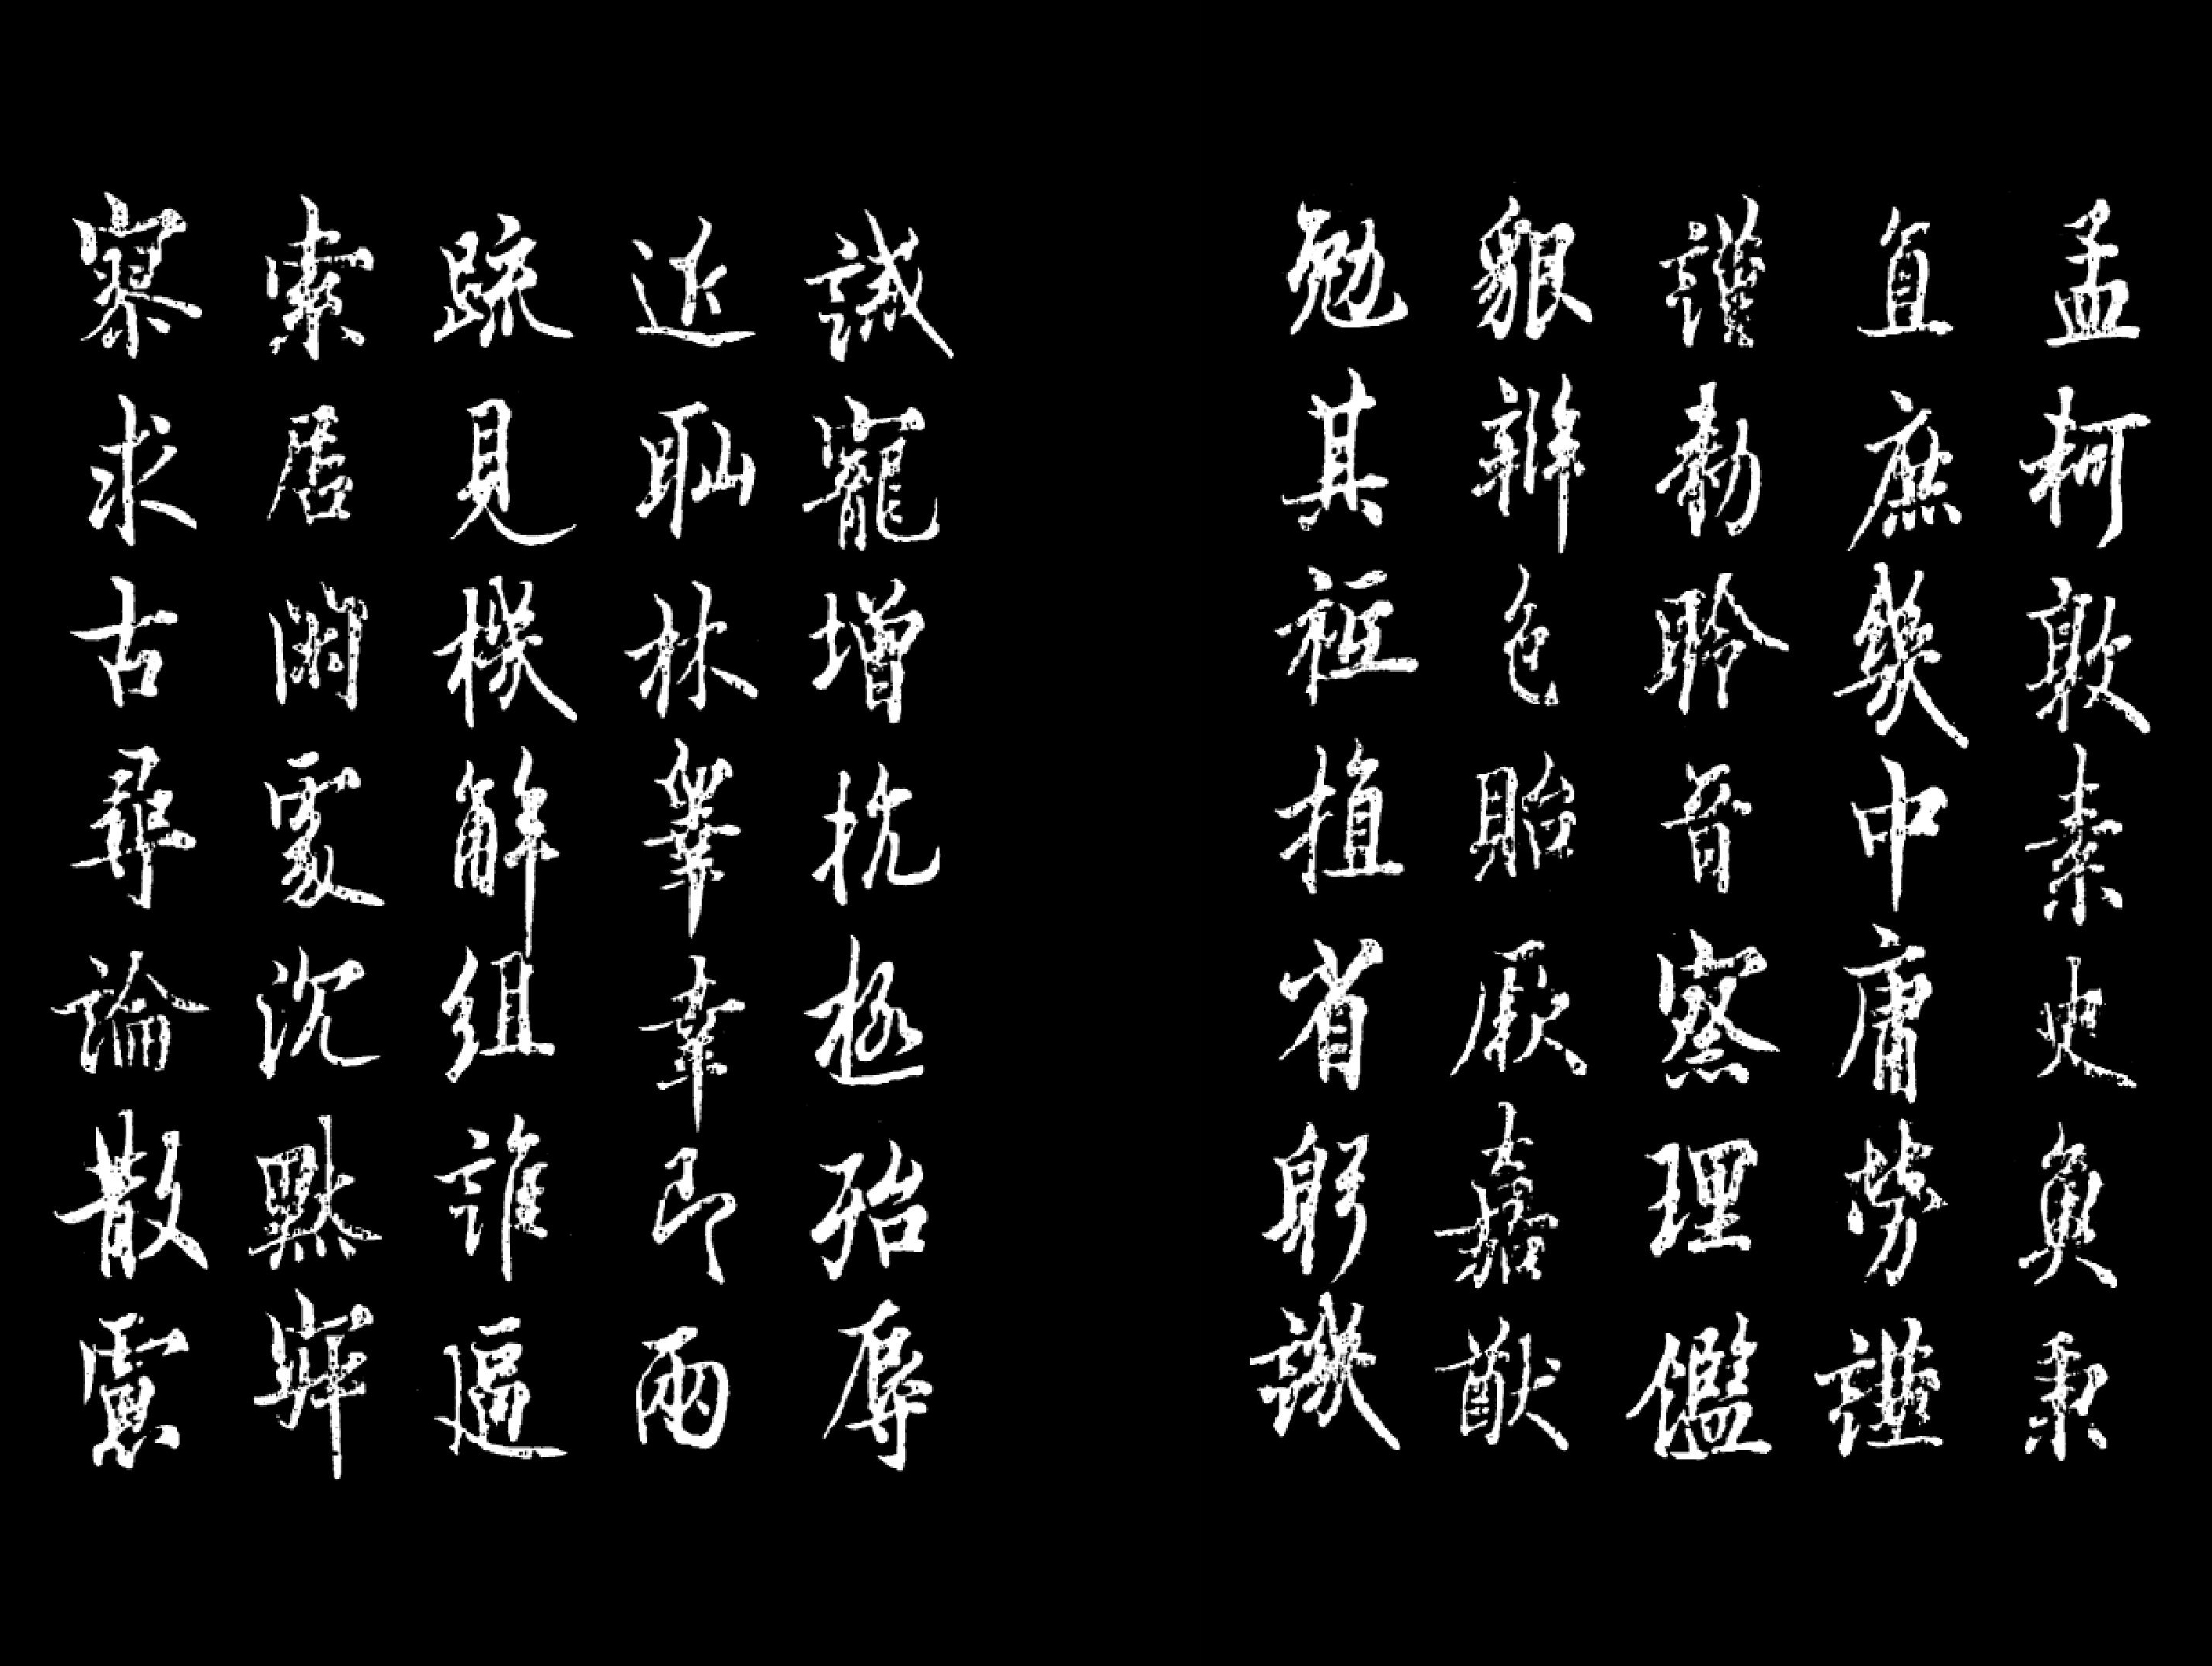 孟軻敦素史魚秉
直庶幾中庸勞謙
謹勅聆音察理鑑
貌辯色貽厥嘉猷
勉其祗植省躬譏
誡寵增抗極殆辱
近恥林睾幸即兩
疏見機解組誰逼
索居閑處沉默寂
寥求古尋論散慮